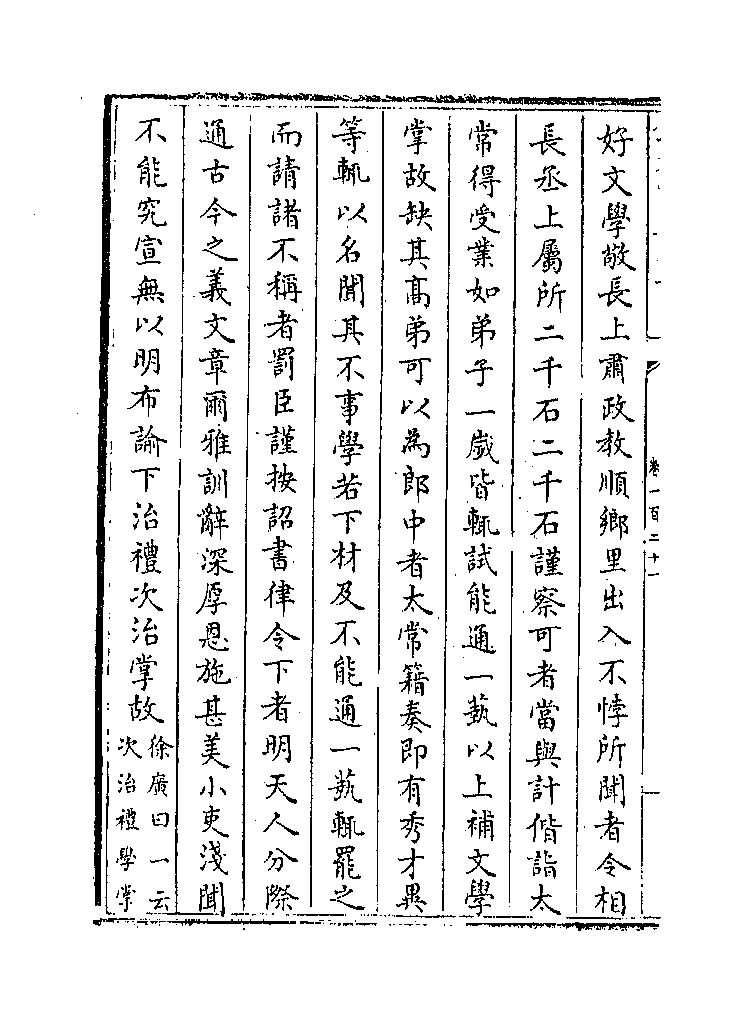 卷一百二十一
好文學敬長上肅政教順鄉里出入不悖所聞者令相
長丞上屬所二千石二千石謹察可者當與計偕詣太
常得受業如弟子一歲皆輒試能通一藝以上補文學
掌故缺其髙弟可以為郎中者太常籍奏即有秀才異
等輒以名聞其不事學若下材及不能通一藝輒罷之
而請諸不稱者罰臣謹按詔書律令下者明天人分際
通古今之義文章爾雅訓辭深厚恩施甚美小吏淺聞
不能究宣無以明布諭下治禮次治掌故徐廣曰一云
次治禮學掌